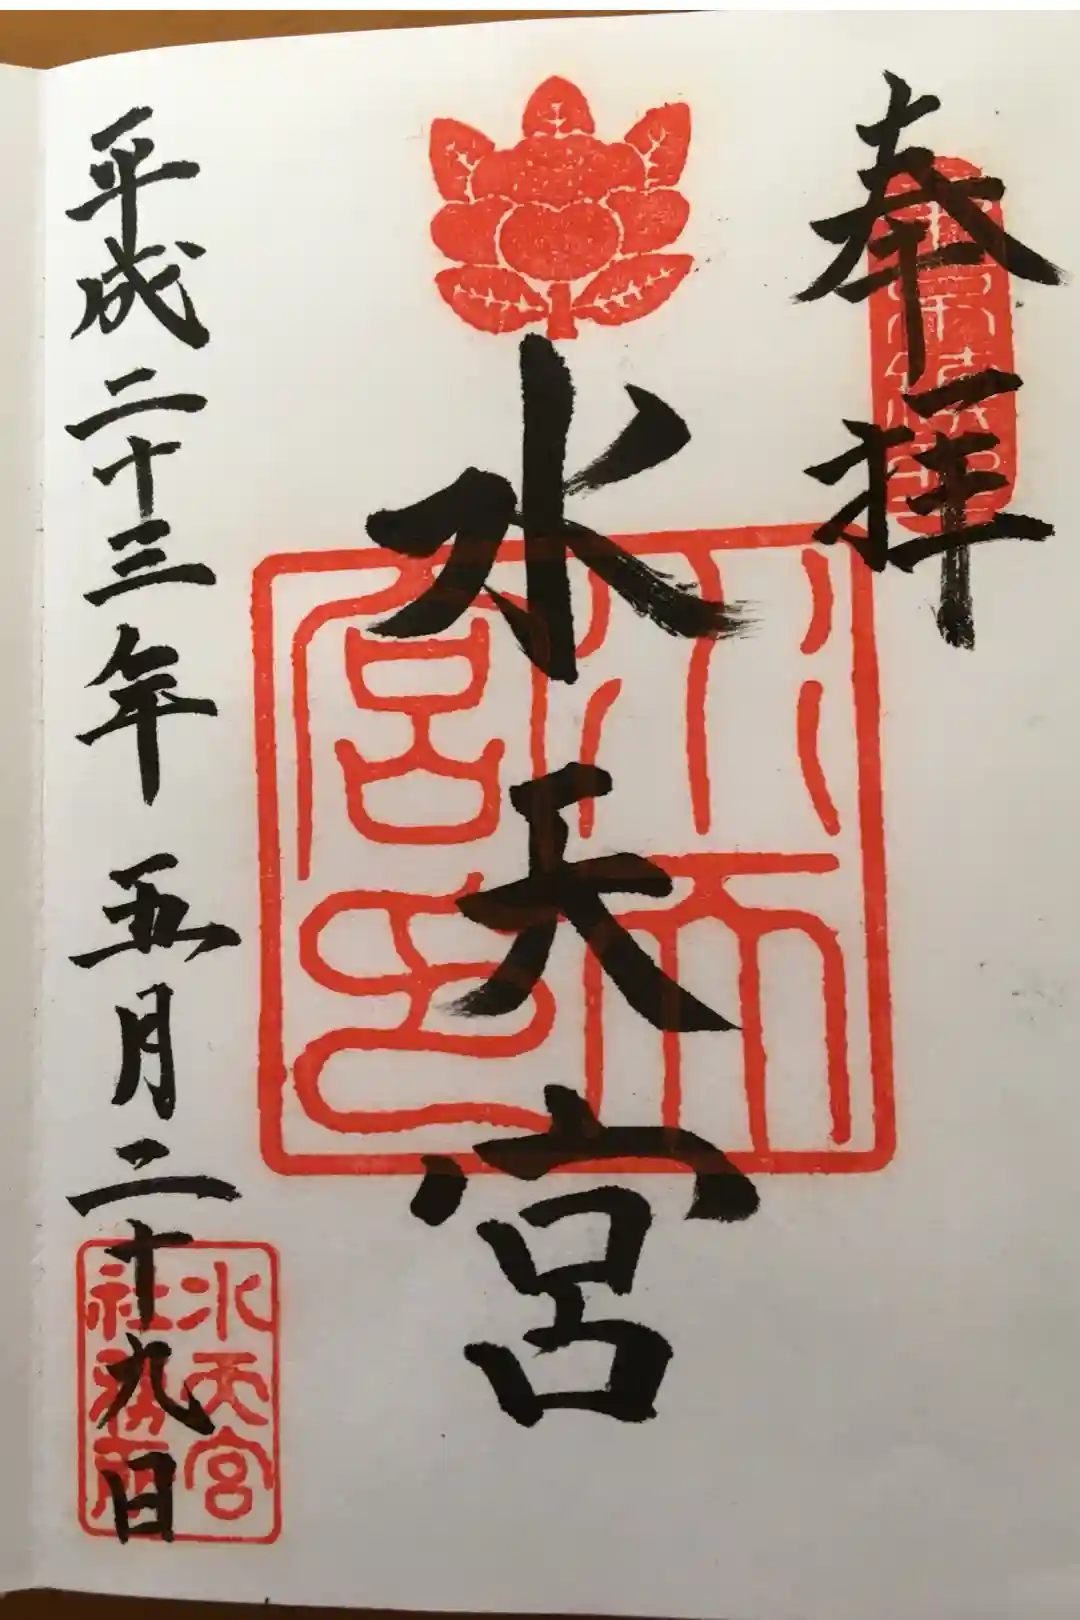 奉拝
水天宮
平成二十三年 五月二十九日
水天宮印
水天宮
社務所